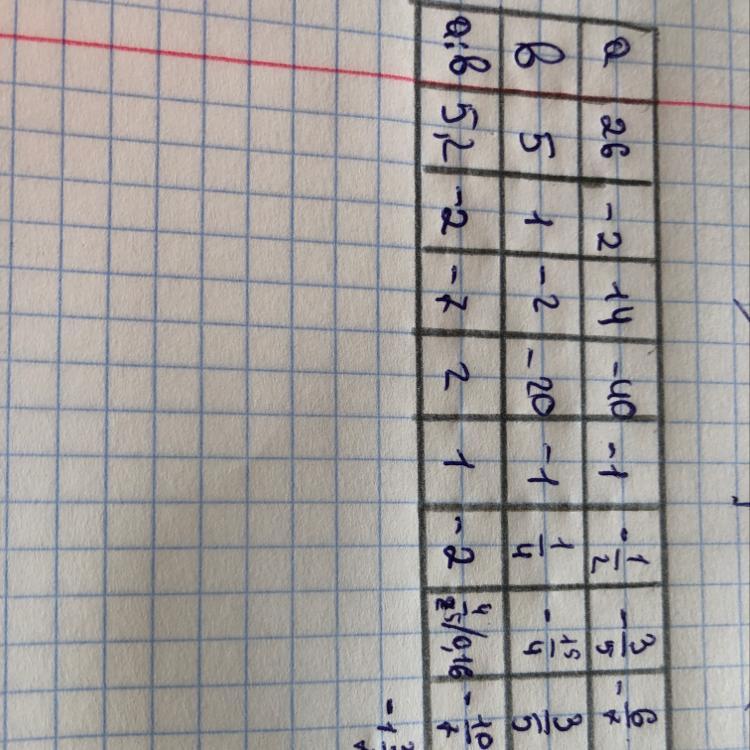 a 26 -2 14 -40 -1 -1/2 -3/5 -6/7
b 5 1 -2 -20 -1 1/4 -15/4 3/5
a:b 5,2 -2 -7 2 1 -2 4/25/0,16 -10/7
-1